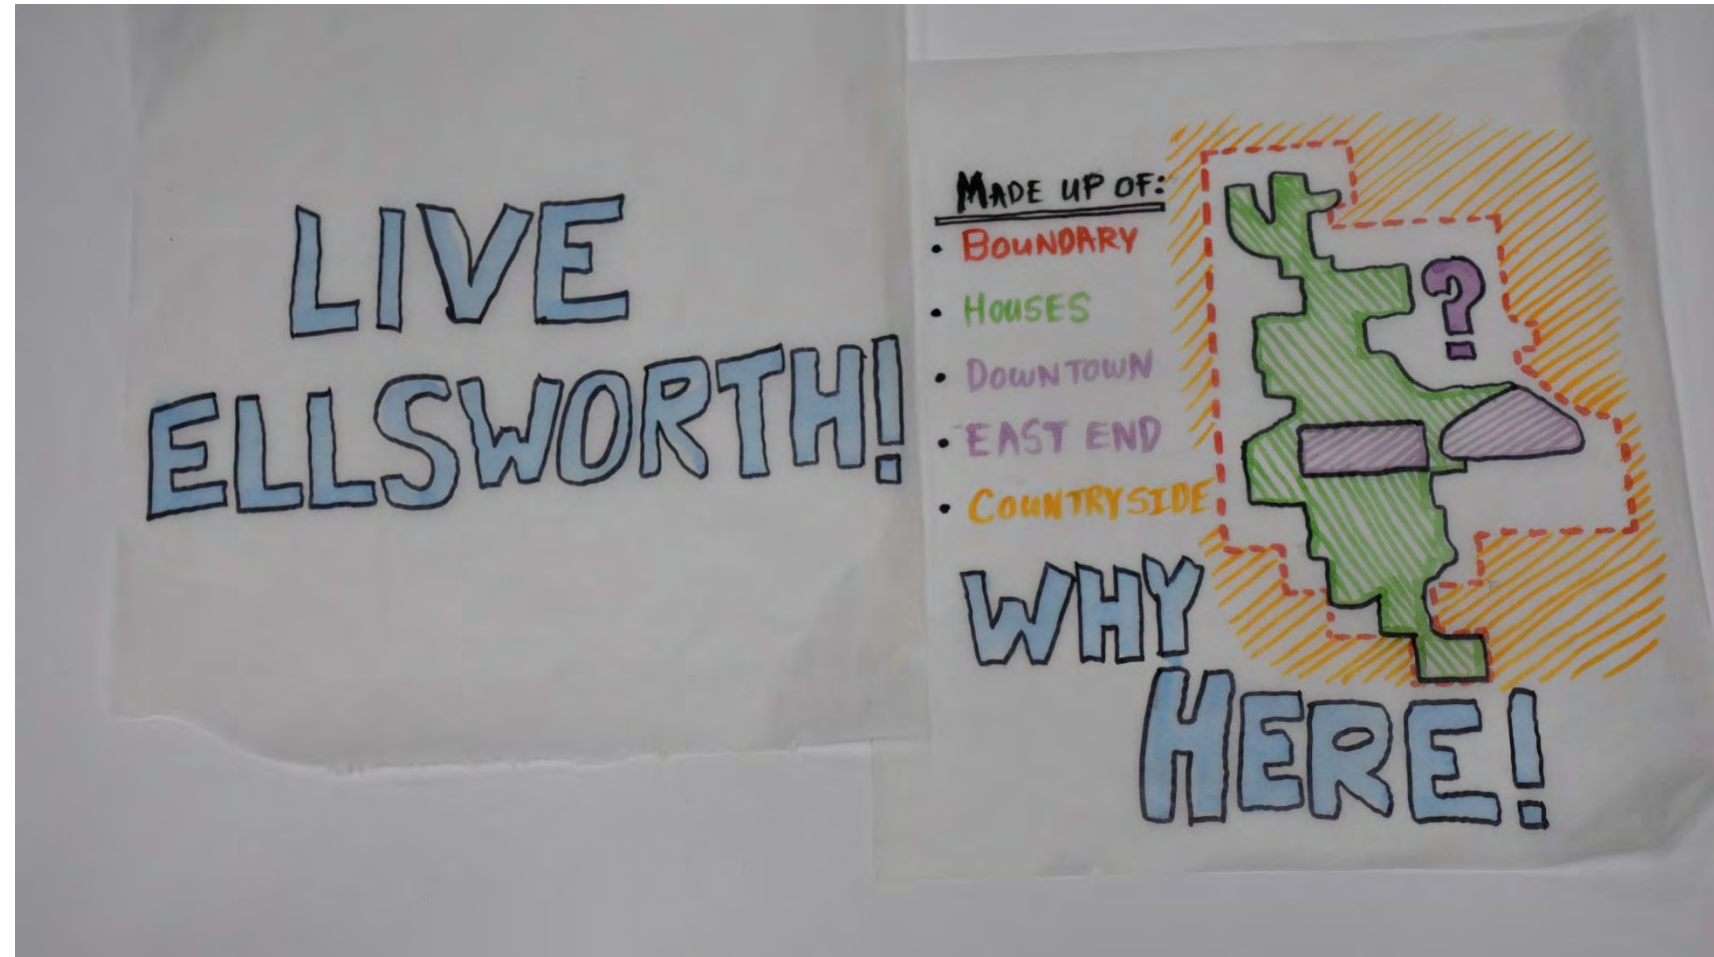 LIVE
ELLSWORTH!
MADE UP OF:
• BOUNDARY
• HOUSES
• DOWNTOWN
• EAST END
• COUNTRYSIDE
?
WHY
HERE!